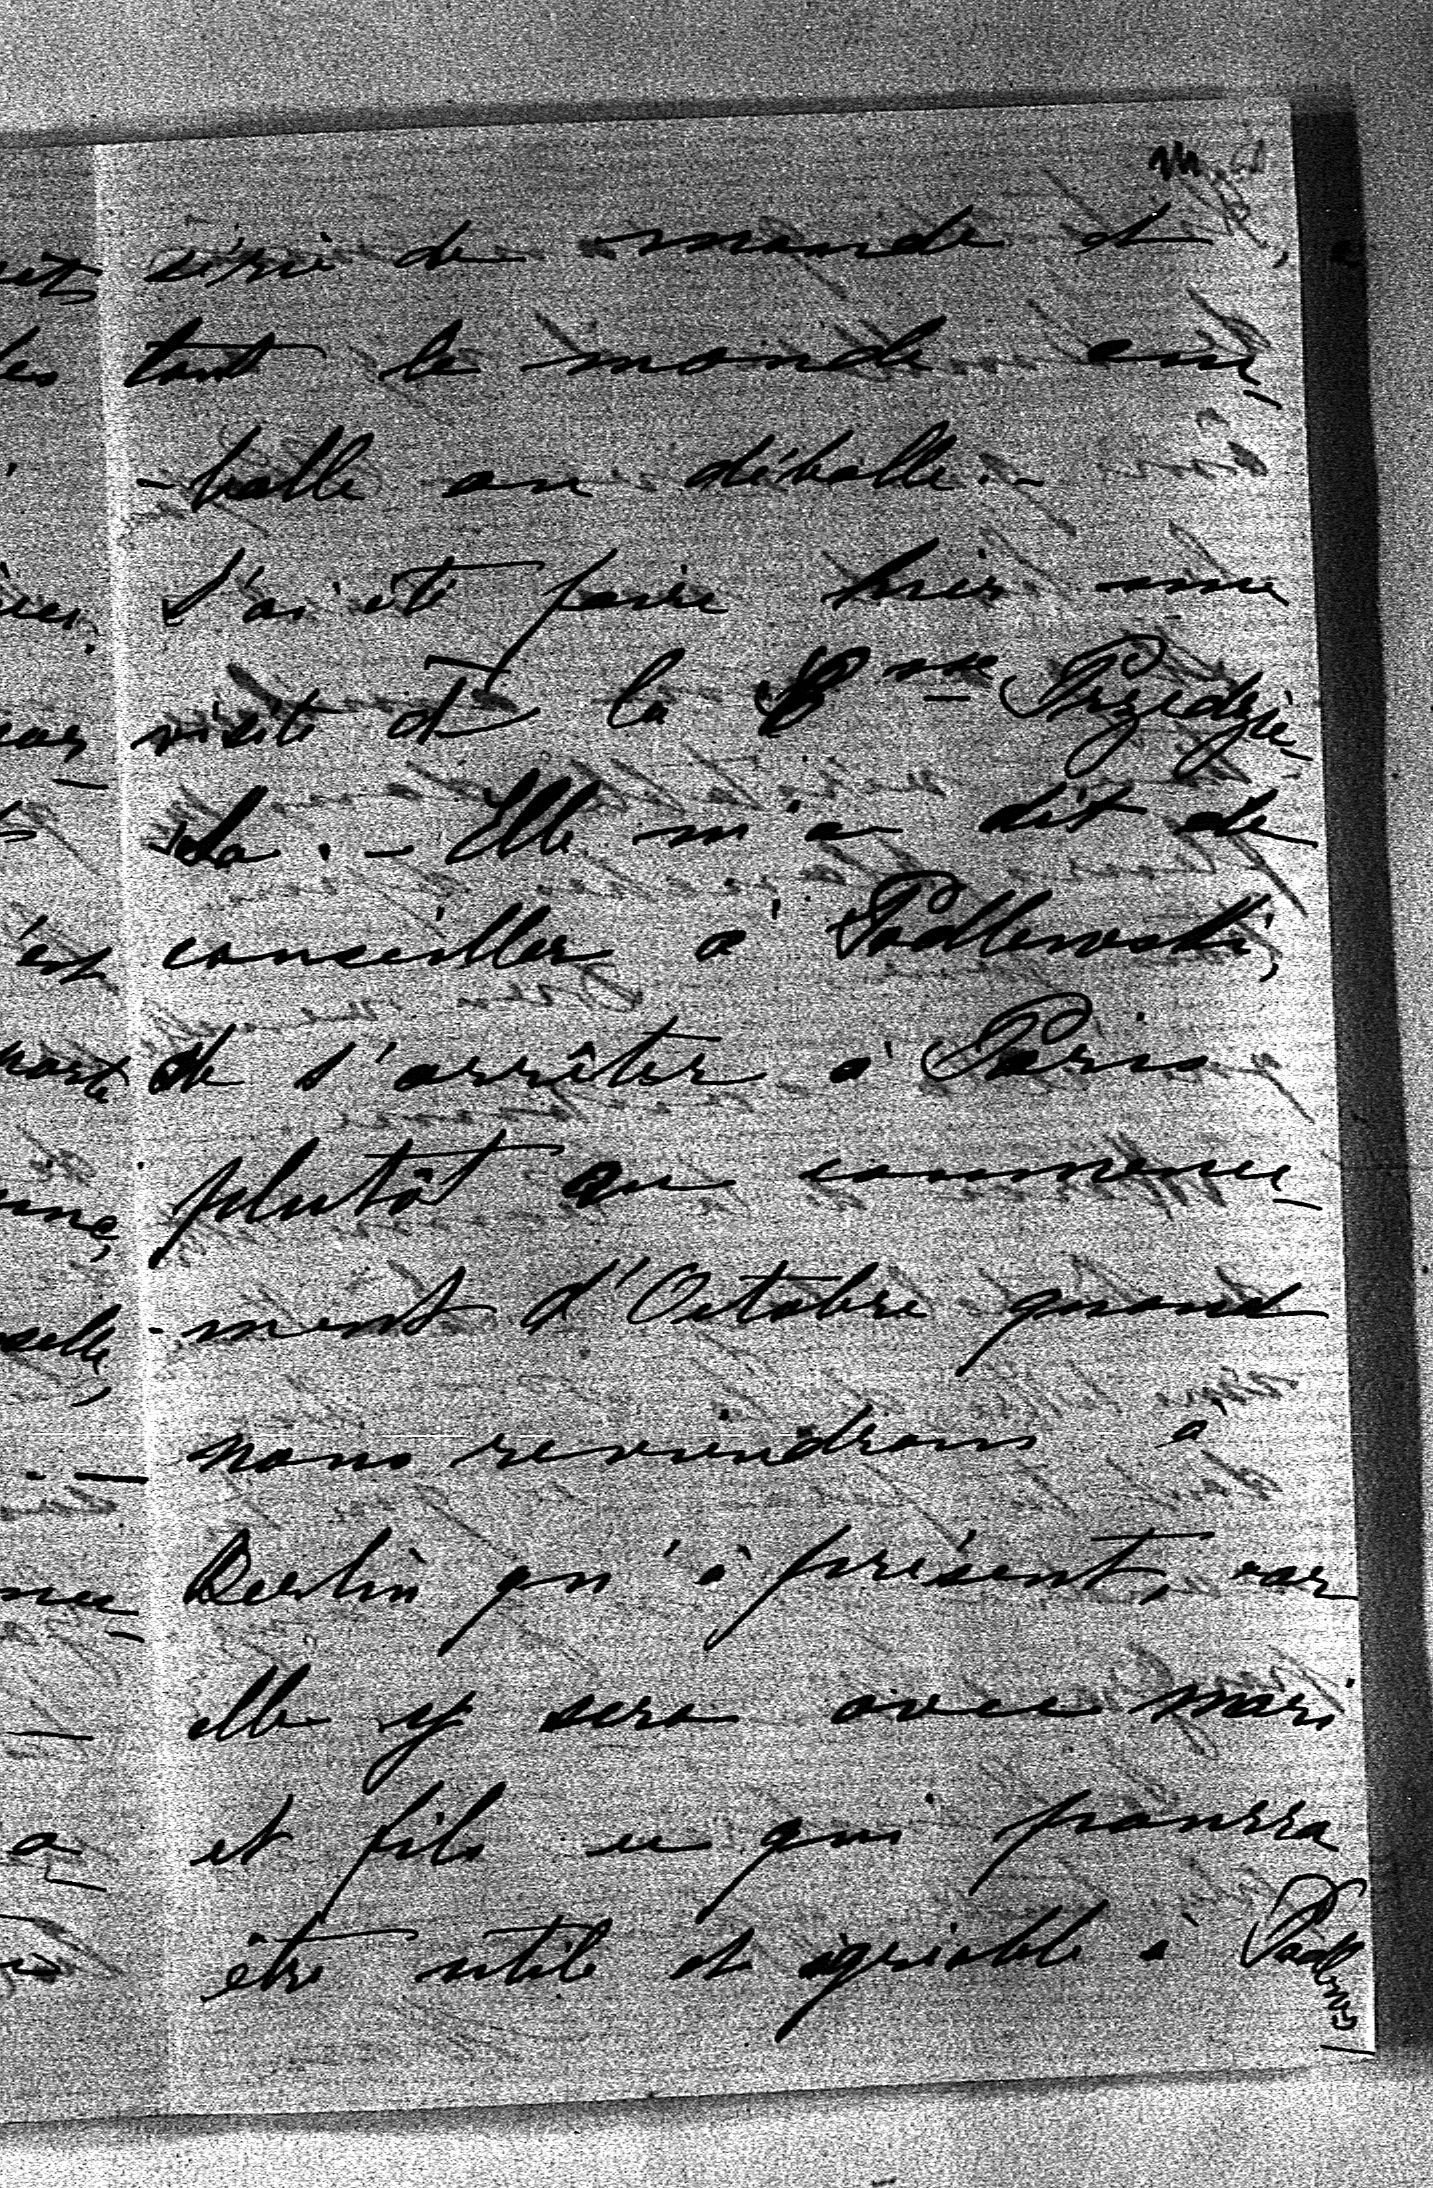 série de monde et
tout le monde em-
-balle ou déballe. -
J'ai été faire hier une
visite à la Csse Przedzie-
ska. - Elle m'a dit de
conseiller à Podlewski,
de s'arrêter à Paris
plutôt au commence-
-ment d'Octobre quand
nous reviendrons à
Berlin qu'à présent, car
elle y sera avec mari
et fils ce qui pourra
être utile et agréable à Podlews-